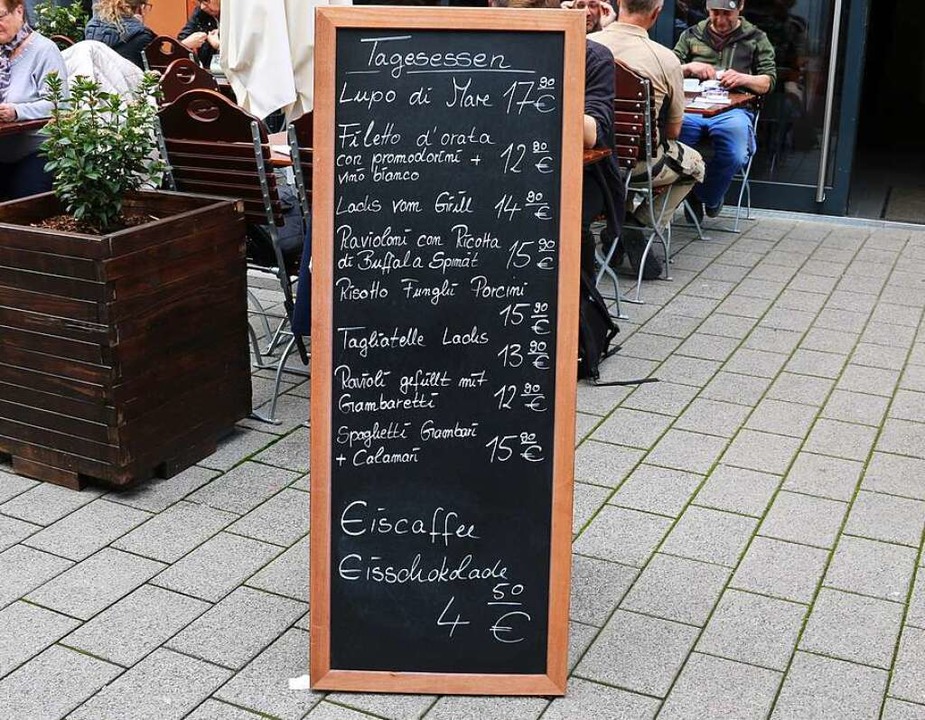 Tagesessen
Lupo di Mare 17 90 €
Filetto d'orata
con promodorini +
vino bianco 12 90 €
Lachs vom Grill 14 90 €
Ravioloni con Ricotta
di Buffala Spinat 15 90 €
Risotto Funghi Porcini
15 90 €
Tagliatelle Lachs
13 90 €
Ravioli gefüllt mit
Gambaretti 12 90 €
Spaghetti Gambari
+ Calamari 15 90 €
Eiscaffee
Eisschokolade
4 50 €